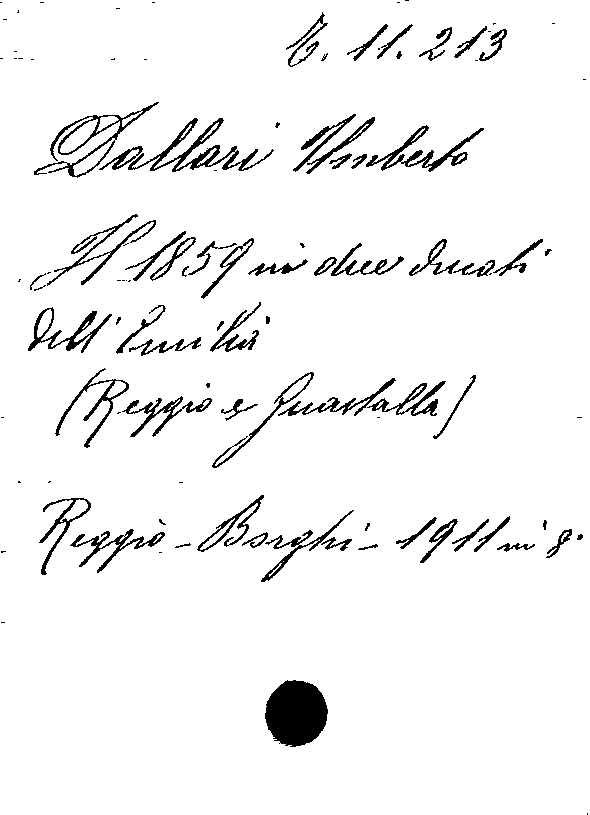 E. 11. 213
Dallari Umberto
Il 1859 in due ducati
dell' Emilia
(Reggio e Guastalla)
Reggio - Borghi - 1911 in 8°